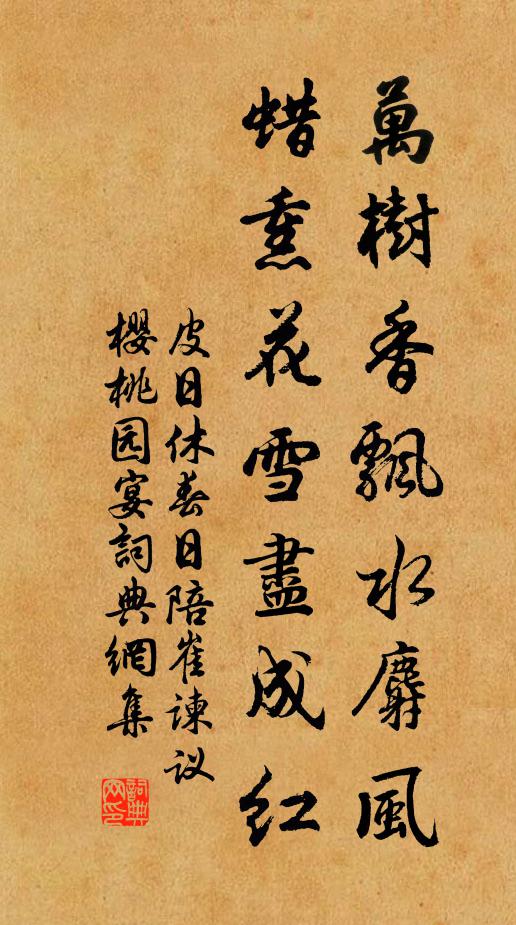 萬樹香飄水麝風
蜡熏花雪盡成红
皮日休春日陪崔谏议
櫻桃园宴詞典網集
詞典网印